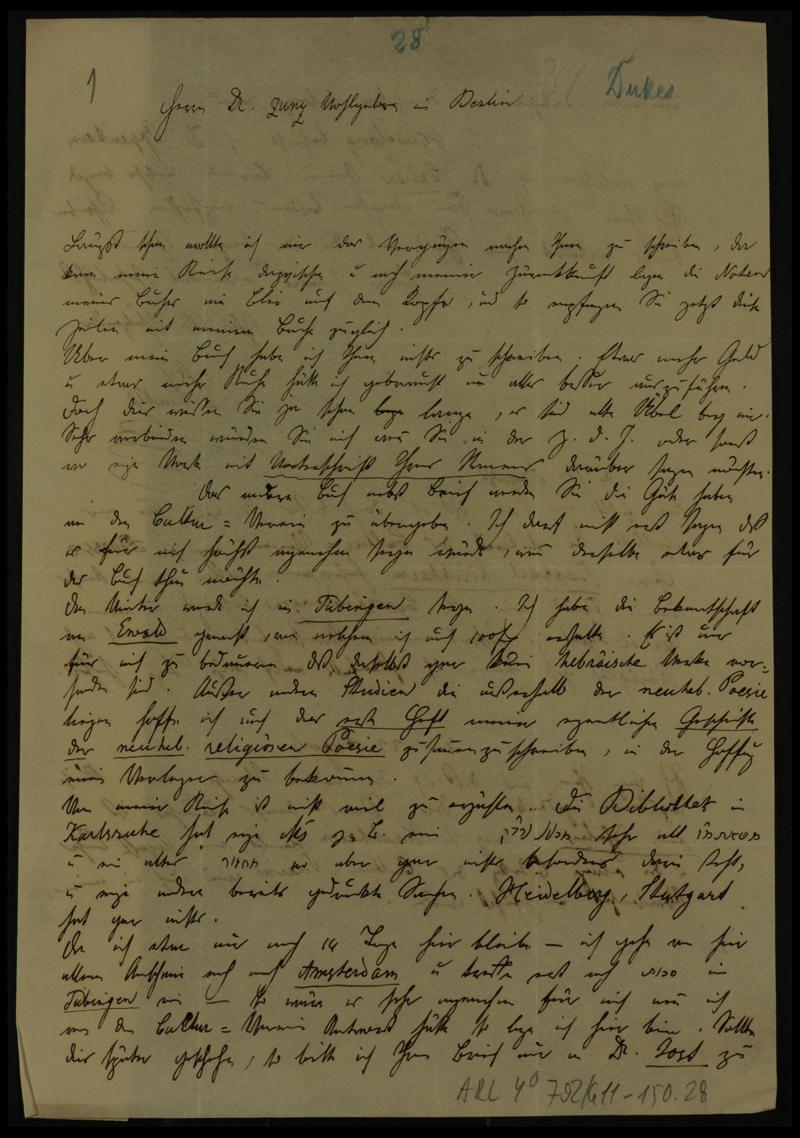 28
1
Dukes
Herrn Dr. Zunz Wohlgeboren in Berlin
Längst schon wollte ich mir das Vergnügen machen Ihnen zu schreiben, da
kam meine Reise dazwischen u nach meiner Zurückkunft lagen die Noten
meines Buches wie Blei auf dem Kopfe, und so empfangen Sie jetzt diese
Zeilen mit meinem Buche zugleich.
Über mein Buch habe ich Ihnen nichts zu schreiben. Etwas mehr Geld
u etwas mehr Ruhe hätte ich gebraucht um alles besser auszuführen.
Doch dies wissen Sie ja schon lange, es sind alte Übel bey mir.
Sehr verbinden würden Sie mich wenn Sie in der Z. d. J. oder sonst
wo einige Worte mit Unterschrift Ihres Namens darüber sagen möchten.
Das andere Buch nebst Brief werden Sie die Güte haben
an den Cultur=Verein zu übergeben. Ich darf nicht erst sagen daß
es für mich höchst angenehm seyn würde, wenn derselbe etwas für
das Buch thun möchte.
Den Winter werde ich in Tübingen seyn. Ich habe die Bekanntschaft
von Ewald gemacht, von welchem ich auch erhalte. Es ist nur
für mich zu bedauern daß daselbst gar keine hebräische Werke vor=
handen sind. Außer andern Studien die außerhalb der neuheb. Poesie
liegen hoffe ich auch das erste Heft meiner eigentlichen Geschichte
der neuheb. religiösen Poesie zusammenzuschreiben, in der Hoffnung
einen Verleger zu bekommen.
Von meiner Reise ist nicht viel zu erzählen. Die Bibliothek in
Karlsruhe hat einige Ms z. B. ein sehr alt
u ein altes wo aber gar nichts besonders darin steht,
u einige andere bereits gedruckte Sachen. Heidelberg, Stuttgart
hat gar nichts.
Da ich etwa nur noch 14 Tage hier bleibe — ich gehe von hier
allem Anschein nach nach Amsterdam u treffe erst nach in
Tübingen ein — so wäre es sehr angenehm für mich wenn ich
von dem Cultur=Verein Antwort hätte so lange ich hier bin. Sollte
dies später geschehen, so bitte ich Ihren Brief nur an Dr. Jost zu
ARC 4° 792/G11-150.28